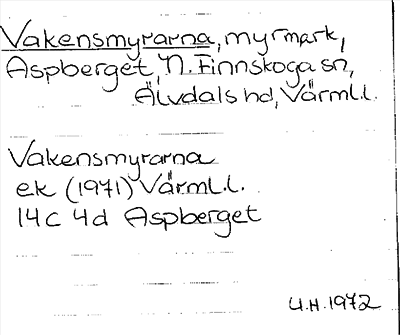 Vakensmyrarna, myrmark,
Aspberget, N. Finnskoga sn,
Älvdals hd, Värml.l.
Vakensmyrarna
ek (1971) Värml.l.
14c 4d Aspberget
U.H. 1972